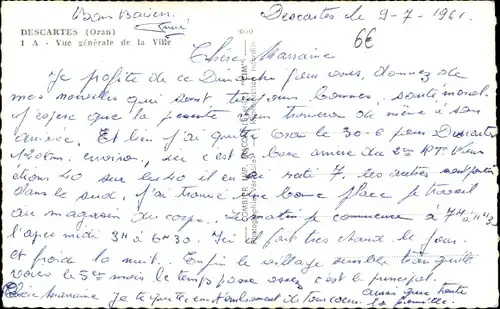 Bon Baiser
Descartes le 9-7-1961
6€
DESCARTES (Oran)
1 A - Vue générale de la Ville
Chère Marraine
Je profite de ce Dimanche pour vous donnez de
mes nouvelles qui sont toujours bonnes, santé moral
J'espère que la présente vous trouvera de même à son
arrivée. Et bien j'ai quitté Oran le 30-6 pour Descartes
environ, ici c'est la base arrière du 2ème
sur les 40 il en ai resté 7, les autres sont partis
dans le sud, j'ai trouvé une bonne place je travail
au magasin du corps, le matin je commence à 7H à 11H
l'après midi 3H à 6H30. Ici il fait très chaud le jour
et froid la nuit. Enfin le village semble tranquille
voici le 5ème mois le temps passe assez c'est le principal.
Chère Marraine Je te quitte en t'embrassant ainsi que toute
la famille
COMBIER IMP. MACON